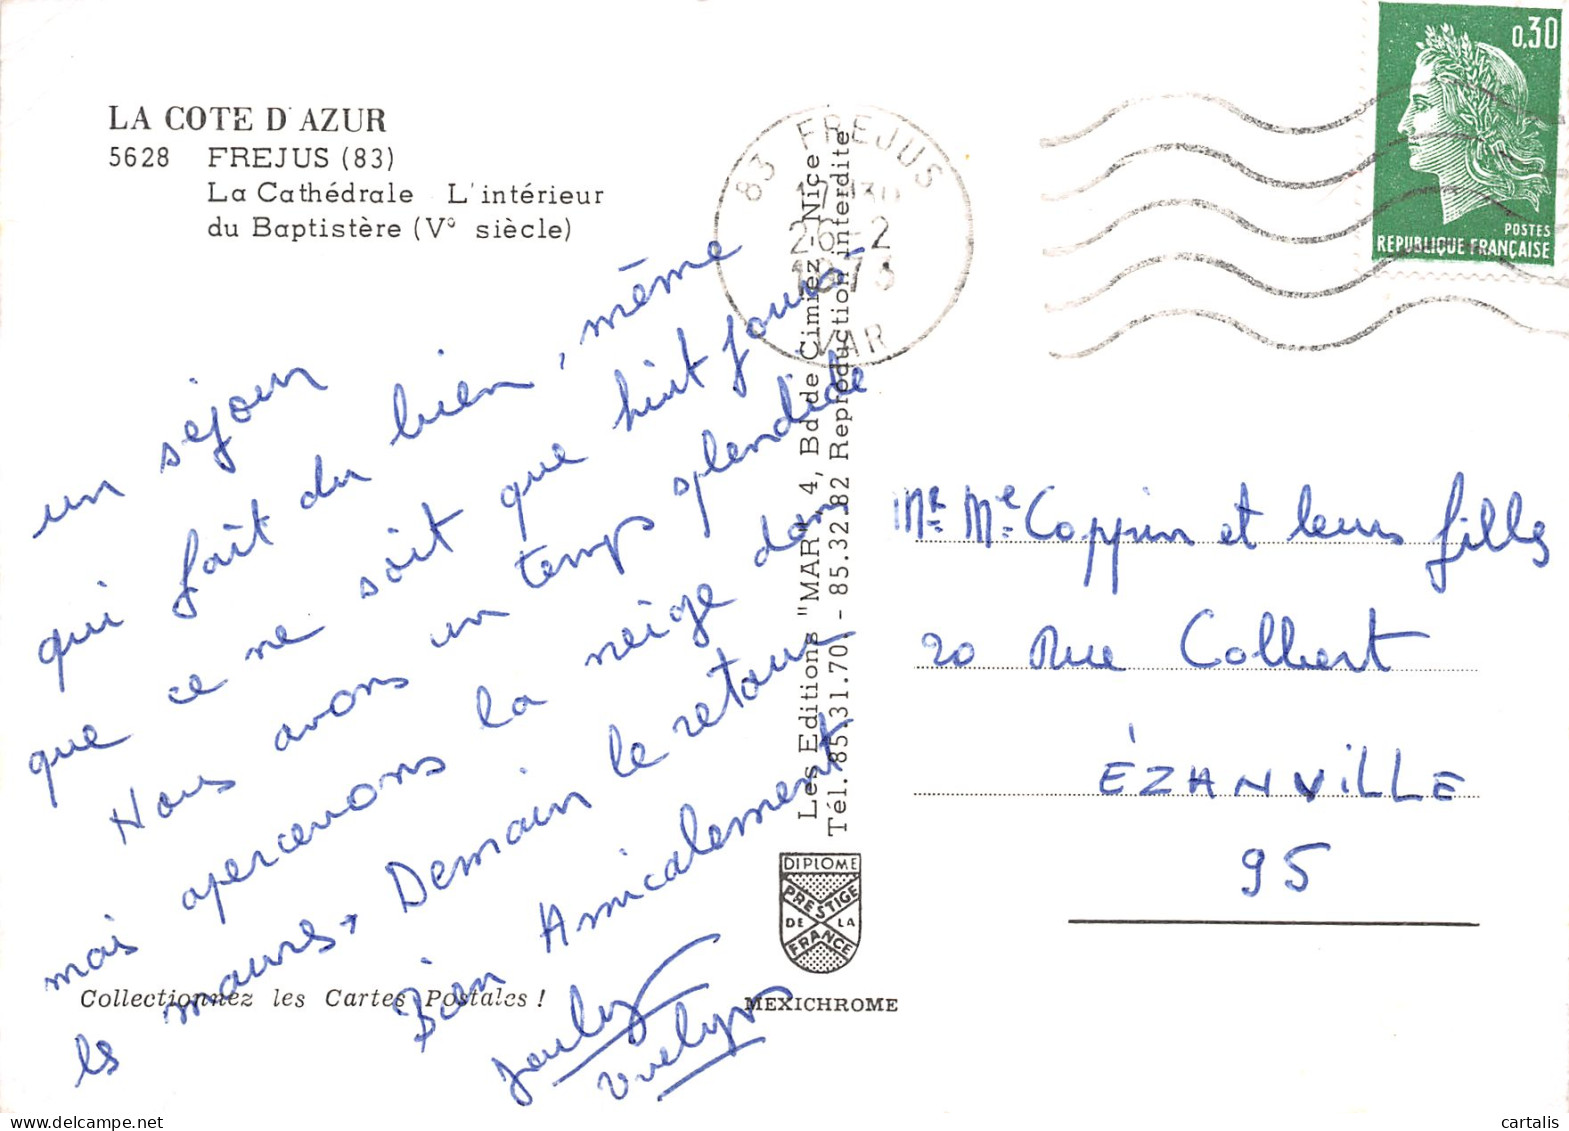 LA COTE D'AZUR
5628 FREJUS (83)
La Cathédrale L'intérieur
du Baptistère (V° siècle)
un séjour
qui fait du bien, même
que ce ne soit que huit jours -
Nous avons un temps splendide
mais apercevons la neige dans
ls maures. Demain le retour
Bien Amicalement
Collectionnez les Cartes Postales !
83 FREJUS
17H30
26-2
1973
VAR
Les Editions "MAR" 4, Bd de Cimiez - Nice
Tél. 85.31.70. - 85.32.82 Reproduction interdite
DIPLOME
PRESTIGE
DE LA
FRANCE
MEXICHROME
0,30
POSTES
REPUBLIQUE FRANÇAISE
Mr. Me Coppin et leurs filles
20 Rue Colbert
ÉZANVILLE
95
cartalis